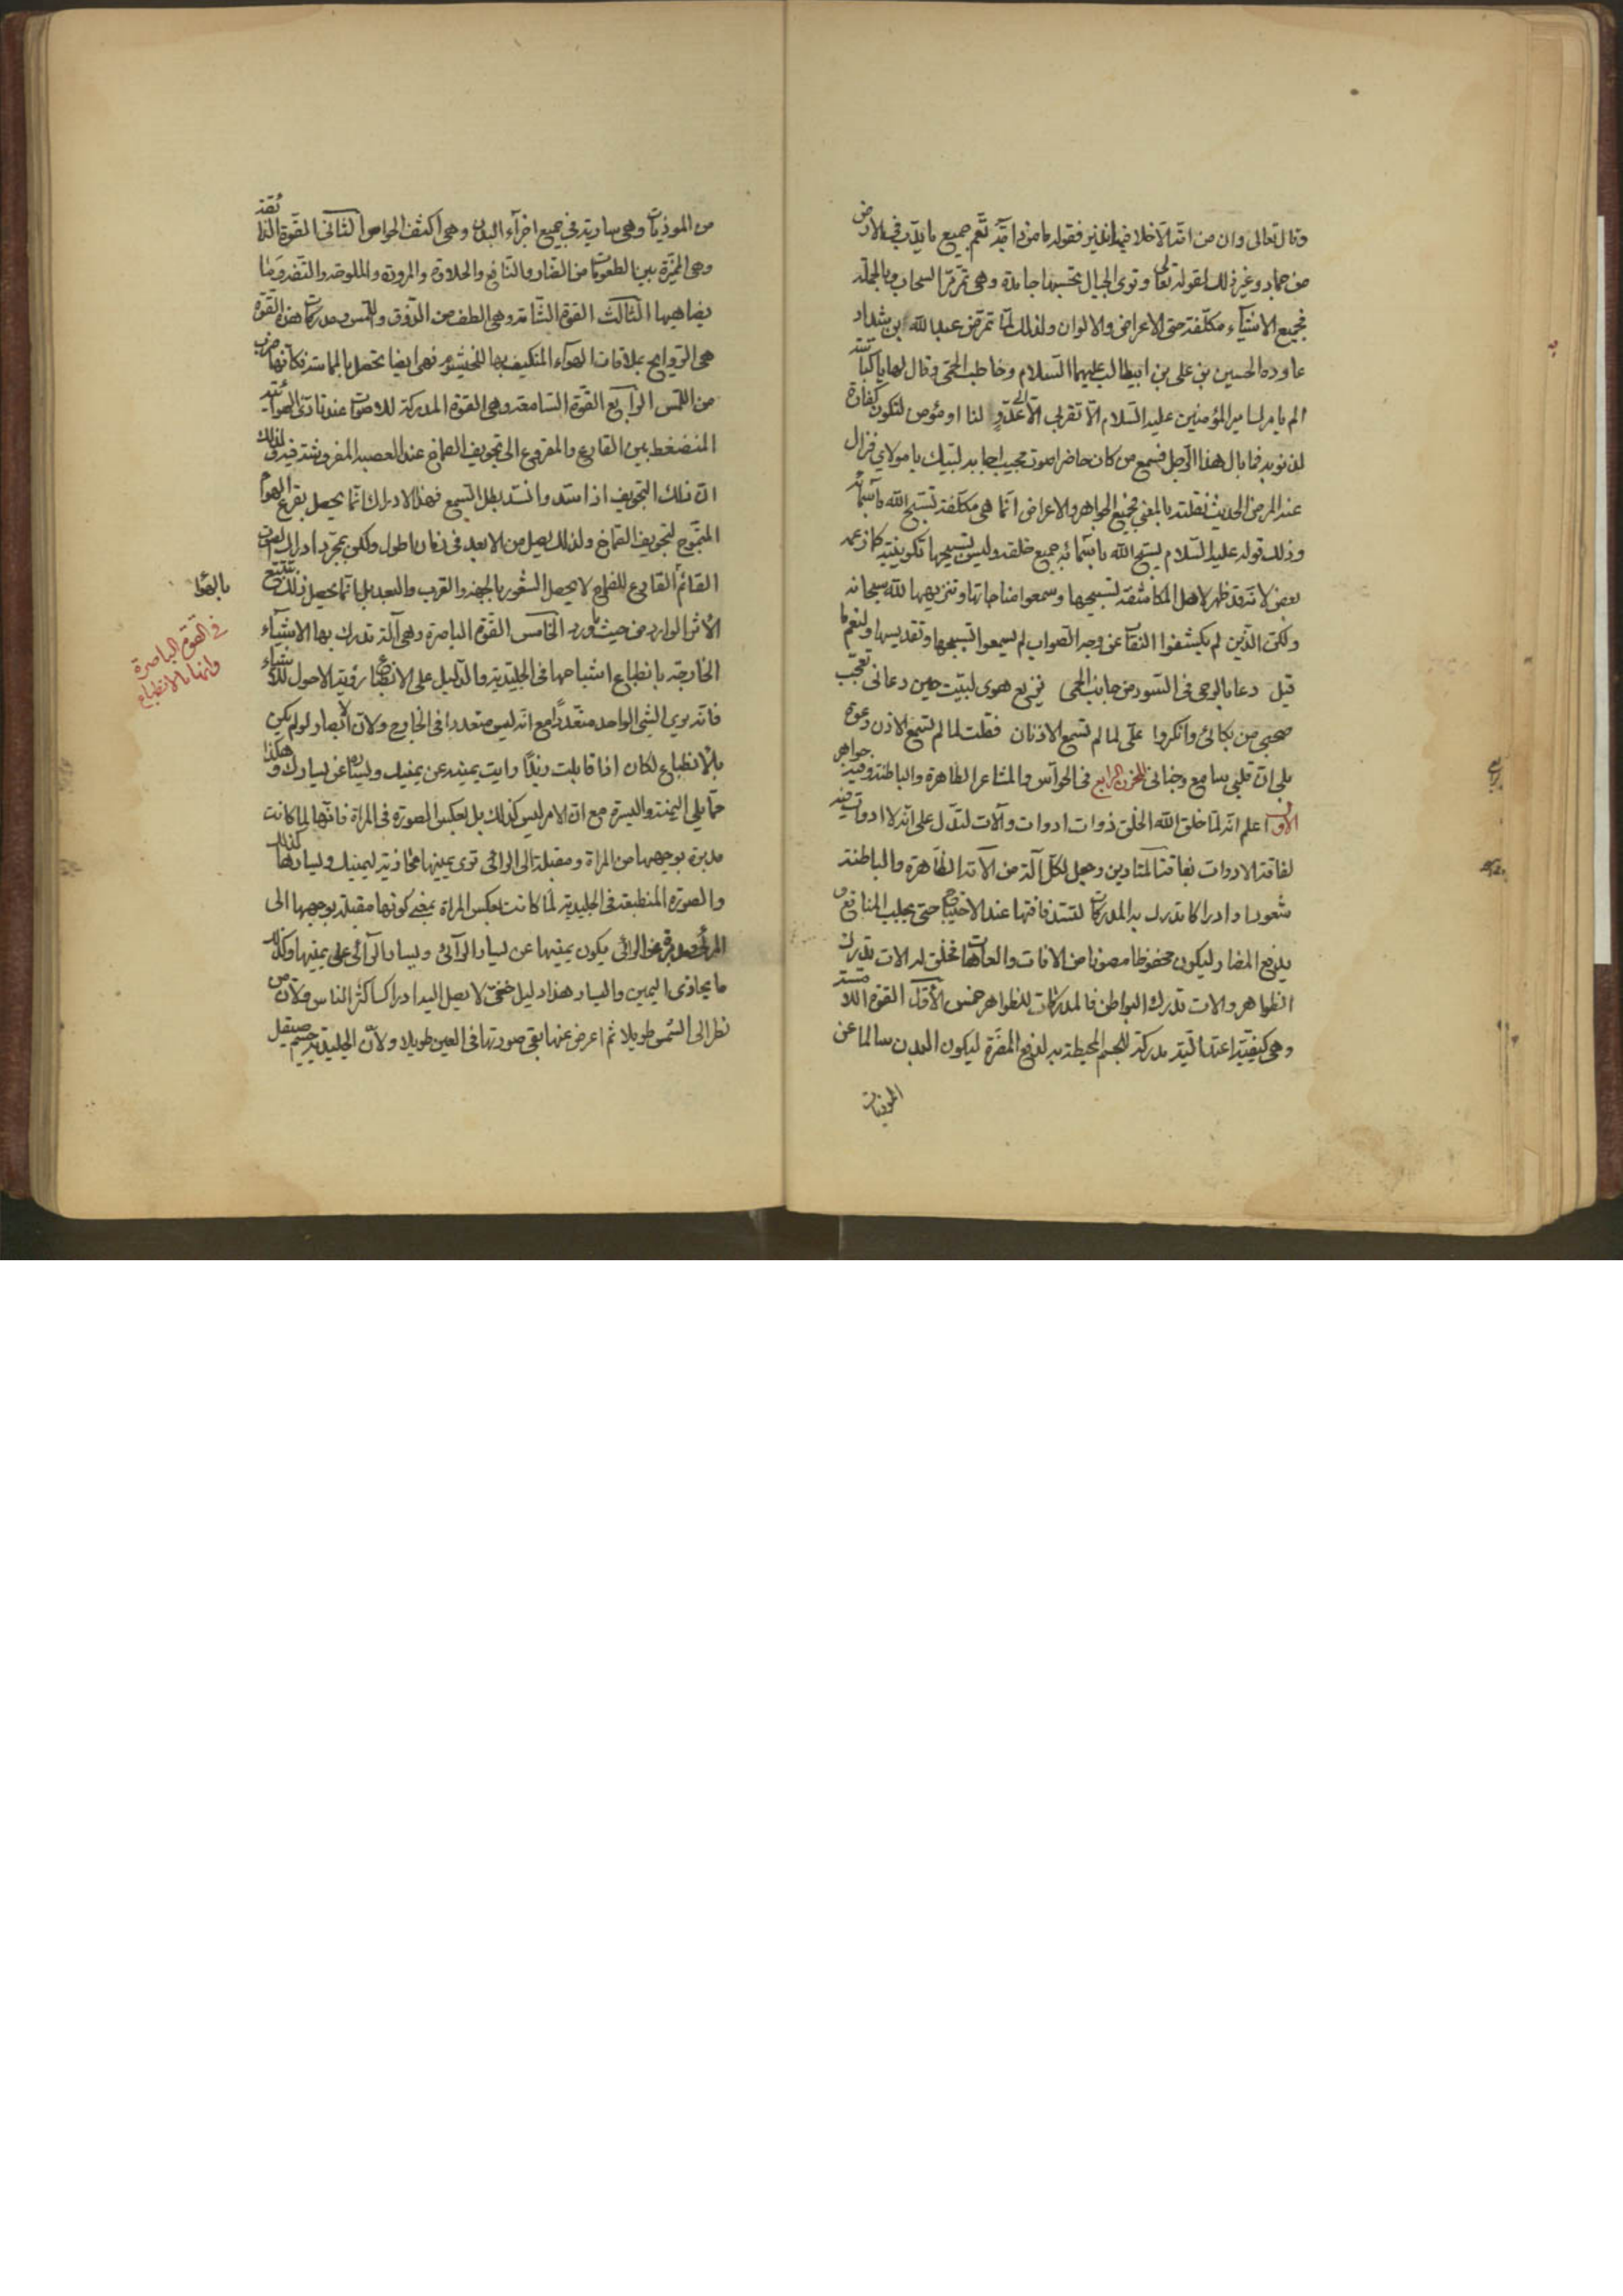 وقال تعالى وان من امة الا خلا فيها نذير فقوله ما من دابة تعم جميع ما يدب في الارض
من جماد وغير ذلك لقوله تعالى وترى الجبال تحسبها جامدة وهي تمر مر السحاب وبالجملة
فجميع الاشياء مكلفة حتى الاعراض والالوان ولذلك لما تمرض عبد الله بن شداد
عاوده الحسين بن علي بن ابيطالب عليهما السلام وخاطب الحمى وقال لها يا كباسة
الم يامرك امير المؤمنين عليه السلام الا تقربي الا الى عدو لنا او مؤمن لتكون كفارة
لذنوبه فما بال هذا الرجل فسمع من كان حاضرا صوت مجيب اجابه لبيك يا مولاي فزال
عنه المرض الحديث نقلته بالمعنى فجميع الجواهر والاعراض انما هي مكلفة تسبح الله باسمائه
وذلك قوله عليه السلام يسبح الله باسمائه جميع خلقه وليس تسبيحها تكوينية كما زعمه
بعض لانه قد ظهر لاهل المكاشفة تسبيحها وسمعوا مناجاتها وتنزيهها لله سبحانه
ولكن الذين لم يكشفوا النقاب عن وجه الصواب لم يسمعوا تسبيحها وتقديسها ولنعم ما
قيل دعا بالوحى في السور من جانب الحمى بربع هوى لبيت حين دعاني تعجب
صحبي من بكائي وانكروا على لما لم تسمع الاذنان فقلت لما لم تسمع الاذن دعوة
بلى ان قلبي سامع وجناني المخزن الرابع في الحواس والمشاعر الظاهرة والباطنة وفيه جواهر
الاول اعلم انه لما خلق الله الخلق ذوات ادوات وآلات لتدل على انه لا ادوات فيه
لفاقة الادوات بفاقة المتادين وجعل لكل آلة من الآته الظاهرة والباطنة
شعورا وادراكا تدرك به المدركات لتسد فاقتها عند الاحتياج حتى يجلب المنافع و
يدفع المضار ليكون محفوظا مصونا من الافات والعاهات فخلق له الات تدرك
الظواهر والات تدرك البواطن فالمدركات للظواهر خمس الاول القوة اللامسة
وهي كيفية اعتدالية مدركة للجسم المحيطة به لدفع المضرة ليكون البدن سالما عن
الموذيات
من الموذيات وهي سارية في جميع اجزاء البدن وهي اكثف الحواس الثاني القوة الذائقة
وهي المميزة بين المطعومات من الضار والنافع والحلاوة والمرودة والملوحة والتفه وما
يضاهيها الثالث القوة الشامة وهي الطف من الذوق واللمس ومدركات هذه القوة
هي الروايح بملاقات الهواء المتكيف بها للخيشوم فهي ايضا تحصل بالمماسة فكانها ضرب
من اللمس الرابع القوة السامعة وهي القوة المدركة للاصوات عند تادي الهوائية
المنضغط بين القارع والمقروع الى تجويف الصماخ عند العصبة المفروشة فيه ولذلك
ان ذلك التجويف اذا سد وانسد بطل السمع فهذا الادراك انما يحصل بقرع الهواء
المتموج لتجويف الصماخ ولذلك يصل من الابعد في زمان اطول ولكن بمجرد ادراك الصوت
القائم بالهواء القارع للصماخ لا يحصل الشعور بالجهة والقرب والبعد بل انما يحصل ذلك بتتبع
الاثر الوارد من حيث ورد الخامس القوة الباصرة وهي آلة تدرك بها الاشياء
في القوة الباصرة
وانها بالانطباع
الخارجة بانطباع اشباحها في الجليدية والدليل على الانطباع رؤية الاحول للاشياء
فانه يرى الشئ الواحد متعددا مع انه ليس متعددا في الخارج ولان الابصار لو لم يكن
بالانطباع لكان اذا قابلت زيدا رايت يمينه عن يمينك ويساره عن يسارك وهكذا
مما يلي اليمنة واليسرة مع ان الامر ليس كذلك بل بعكس الصورة في المراة فانها لما كانت
مدبرة بوجهها من المراة ومقبلة الى الرائي ترى يمينها محاذية ليمينك ويسارها كذلك
والصورة المنطبعة في الجليدية لما كانت بعكس المراة بمعنى كونها مقبلة بوجهها الى
الرائي يكون يمينها عن يسار الرائي ويسار الرائي على يمينها وكذلك
ما يحاذي اليمين واليسار هذا دليل خفي لا يصل اليه ادراك اكثر الناس ولان من
نظر الى الشمس طويلا ثم اعرض عنها بقي صورتها في العين طويلا ولان الجليدية جسم صيقل